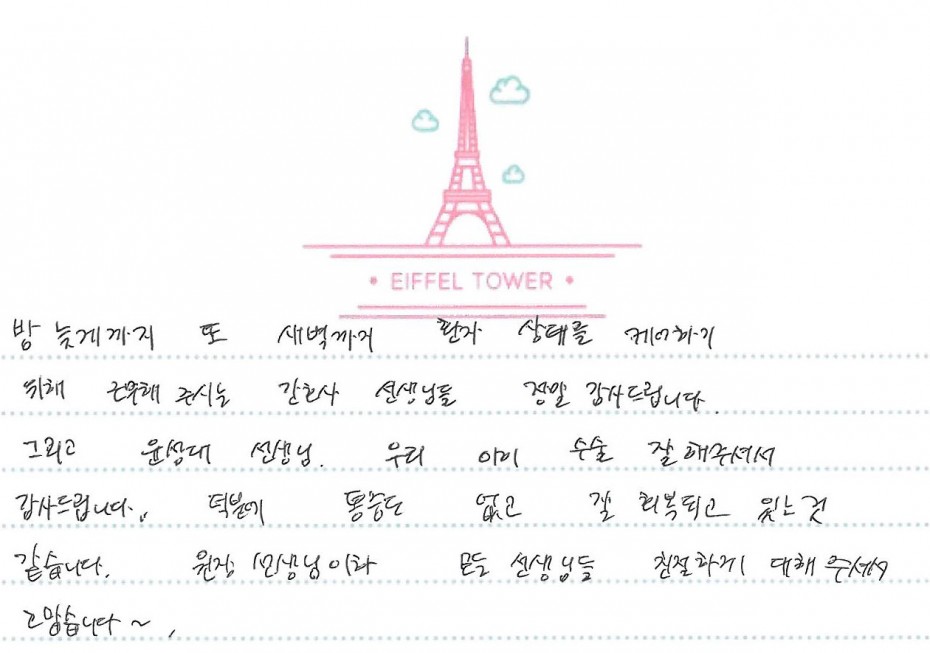 EIFFEL TOWER
밤 늦게까지 또 새벽까지 환자 상태를 케어하기
위해 근무해 주시는 간호사 선생님들 정말 감사드립니다.
그리고 윤성대 선생님. 우리 아이 수술 잘 해주셔서
감사드립니다. 덕분에 통증도 없고 잘 회복되고 있는 것
같습니다. 원장 선생님이랑 모든 선생님들 친절하게 대해 주셔서
고맙습니다 ~